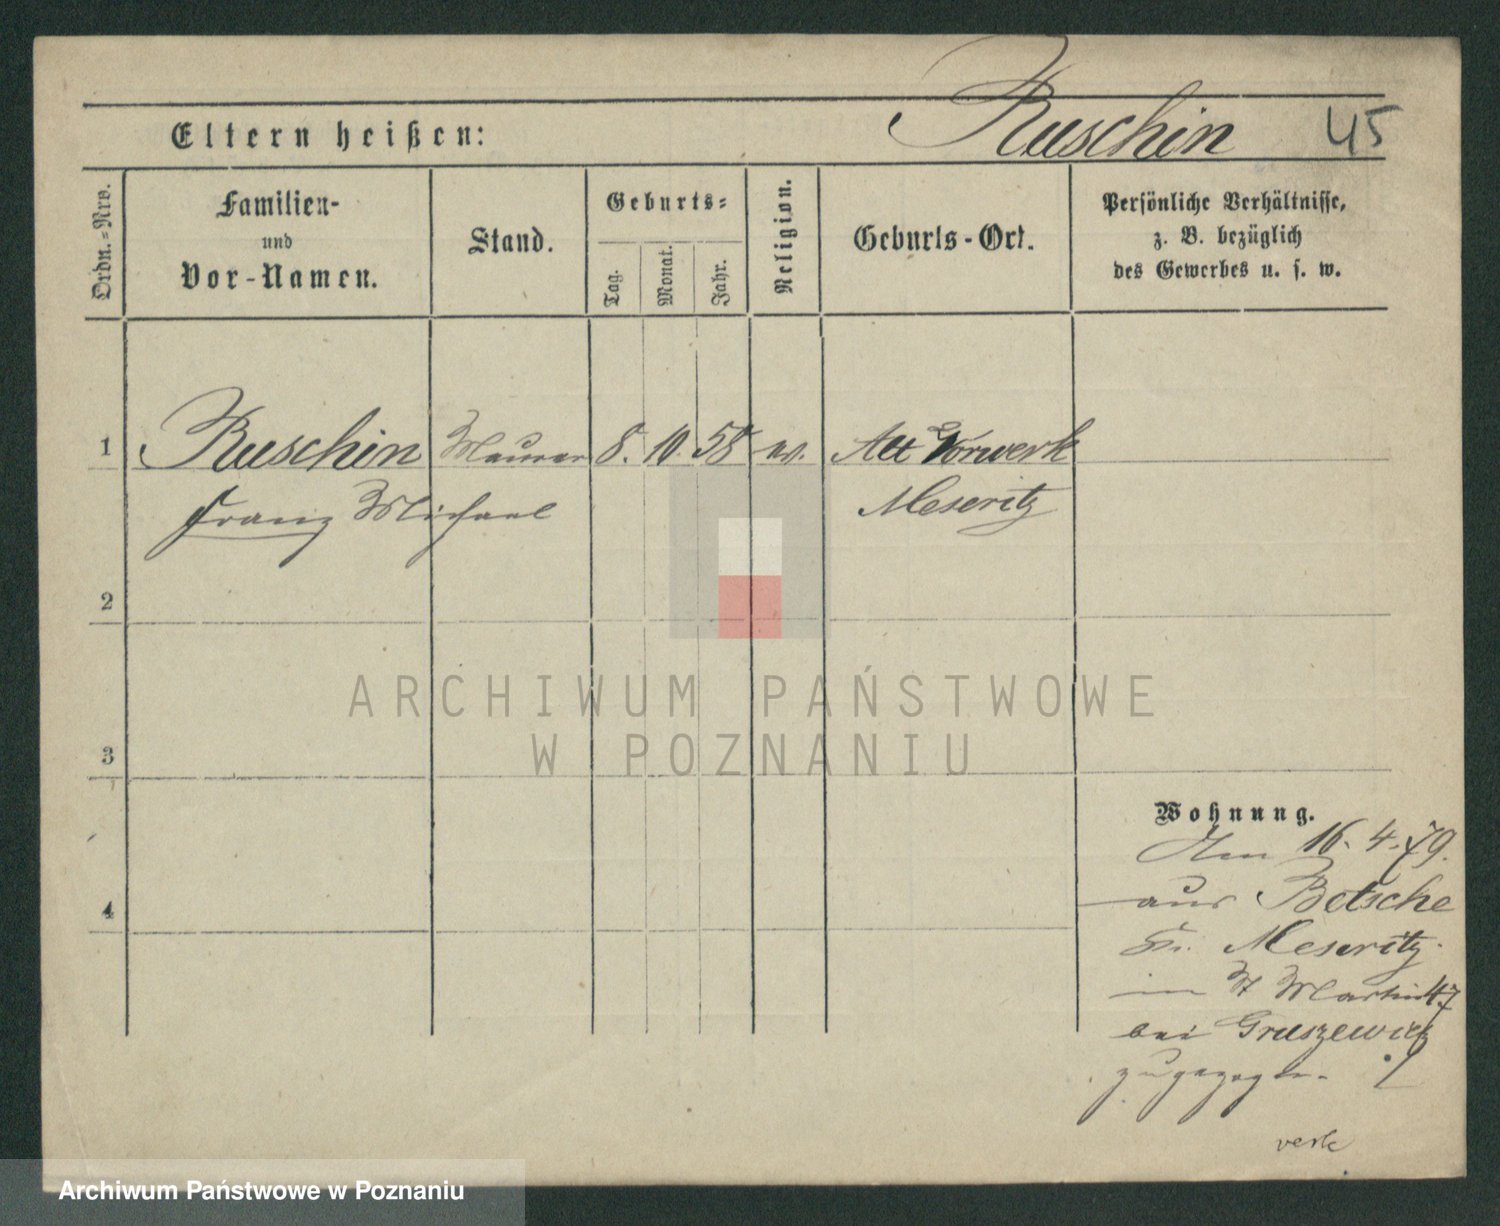 Ruschin 45
Eltern heißen:
Ordn.-Nro.
Familien-
und
Vor-Namen.
Stand.
Geburts-
Tag.
Monat.
Jahr.
Religion.
Geburts-Ort.
Persönliche Verhältnisse,
z. B. bezüglich
des Gewerbes u. s. w.
1 Ruschin Maurer 8. 10. 58 ev. Alt Vorwerk
Franz Michael Meseritz
2
ARCHIWUM PAŃSTWOWE
W POZNANIU
3
Wohnung.
Am 16. 4. 79.
aus Betsche
Kr. Meseritz
in St Martin 47
bei Gruszewicz
4
zugezogen.
Archiwum Państwowe w Poznaniu